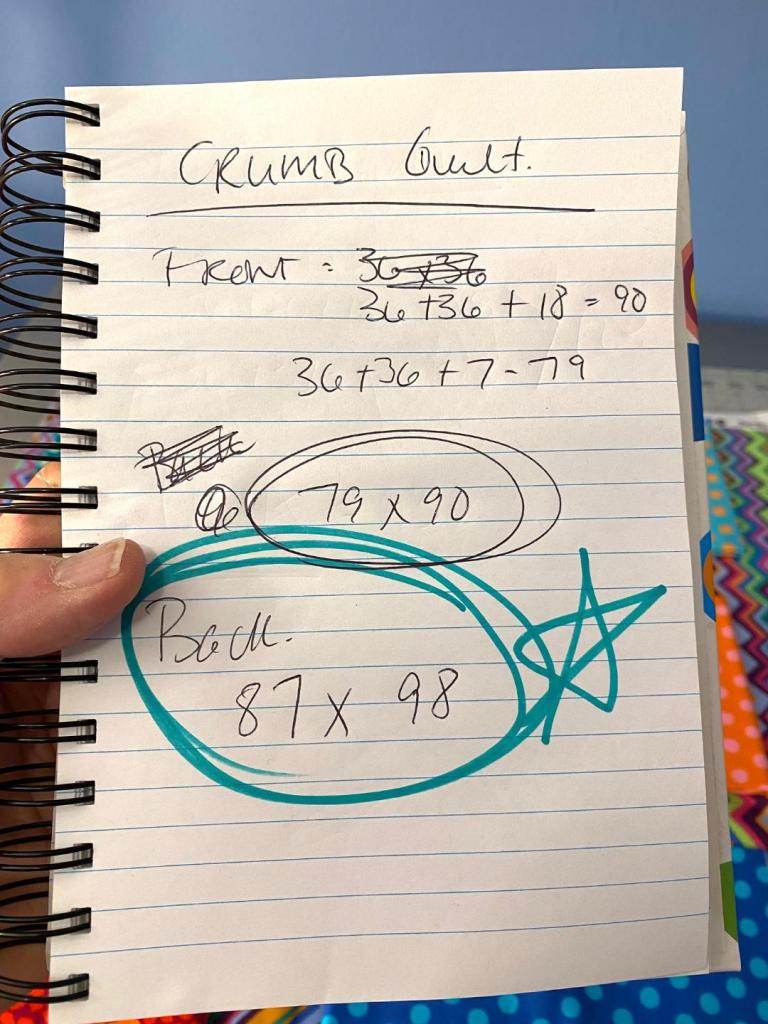 CRUMB Quilt.
Front = 36x36
36+36 + 18 = 90
36+36+7 - 79
Back
79 x 90
Back.
87 x 98